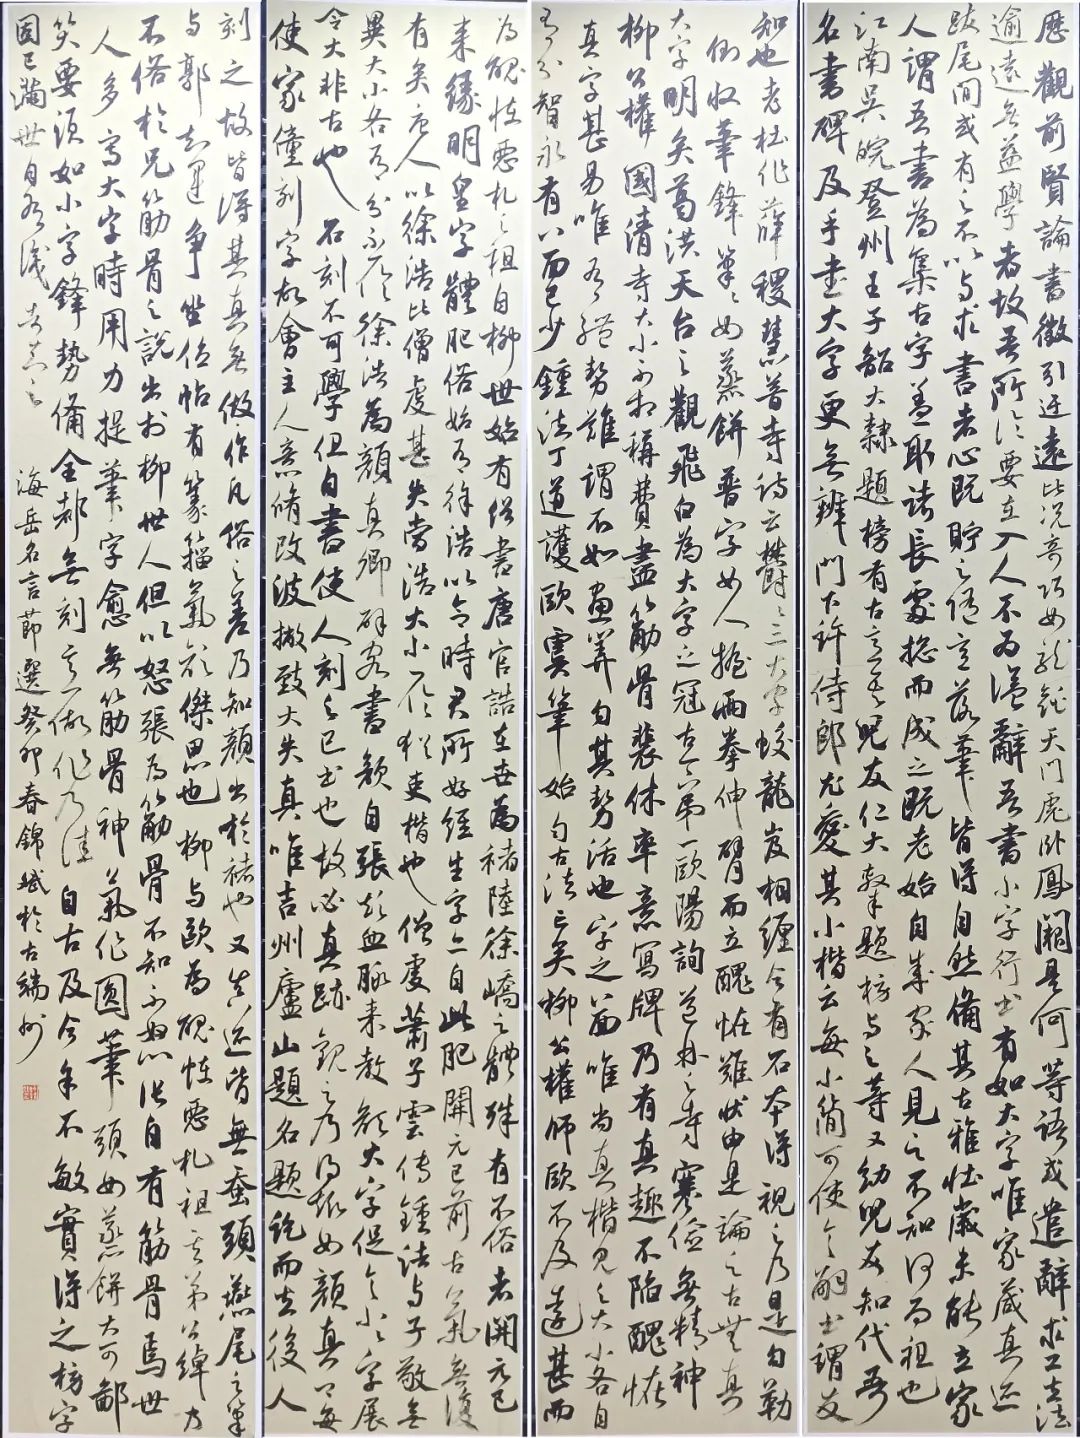 歷觀前賢論書徵引迂遠比況奇巧如龍跳天門虎卧鳳闕是何等語或遣辭求工去法
逾遠無益學者故吾所論要在入人不為溢辭吾書小字行書有如大字唯家藏真跡
跋尾間或有之不以與求書者心既貯之隨意落筆皆得自然備其古雅壯歲未能立家
人謂吾書為集古字蓋取諸長處總而成之既老始自成家人見之不知以何為祖也
江南吳皖登州王子韶大隸題榜有古意吾兒友仁大隸題榜與之等又幼兒友知代吾
名書碑及手書大字更無辨門下許侍郎尤愛其小楷云每小簡可使令嗣書謂友
知也老杜作薛稷慧普寺詩云鬱鬱三大字蛟龍岌相纏今有石本得視之乃是勾勒
倒收筆鋒筆筆如蒸餅普字如人握兩拳伸臂而立醜怪難狀由是論之古無真
大字明矣葛洪天台之觀飛白為大字之冠古今第一歐陽詢道林之寺寒儉無精神
柳公權國清寺大小不相稱費盡筋骨裴休率意寫牌乃有真趣不陷醜怪
真字甚易唯有體勢難謂不如畫算勻其勢活也字之八面唯尚真楷見之大小各自
有分智永有八面已少鍾法丁道護歐虞筆始勻古法亡矣柳公權師歐不及遠甚而
為醜怪惡札之祖自柳世始有俗書唐官誥在世為褚陸徐嶠之體殊有不俗者開元已
來緣明皇字體肥俗始有徐浩以合時君所好經生字亦自此肥開元已前古氣無復
有矣唐人以徐浩比僧虔甚失當浩大小一倫猶吏楷也僧虔蕭子雲傳鍾法與子敬無
異大小各有分不一倫徐浩為顏真卿辟客書韻自張顛血脈來教顏大字促令小小字展
令大非古也石刻不可學但自書使人刻之已非己書也故必真跡觀之乃得趣如顏真卿每
使家僮刻字故會主人意脩改波撇致大失真唯吉州廬山題名題訖而去後人
刻之故皆得其真無做作凡俗之差乃知顏出於褚也又真跡皆無蠶頭燕尾之筆
與郭知運爭坐位帖有篆籀氣顏傑思也柳與歐為醜怪惡札祖其弟公綽乃
不俗於兄筋骨之說出於柳世人但以怒張為筋骨不知不怒張自有筋骨焉世
人多寫大字時用力捉筆字愈無筋骨神氣作圓筆頭如蒸餅大可鄙
笑要須如小字鋒勢備全都無刻意做作乃佳自古及今余不敏實得之榜字
固已滿世自有識者知之　海岳名言節選癸卯春錦斌於古端州